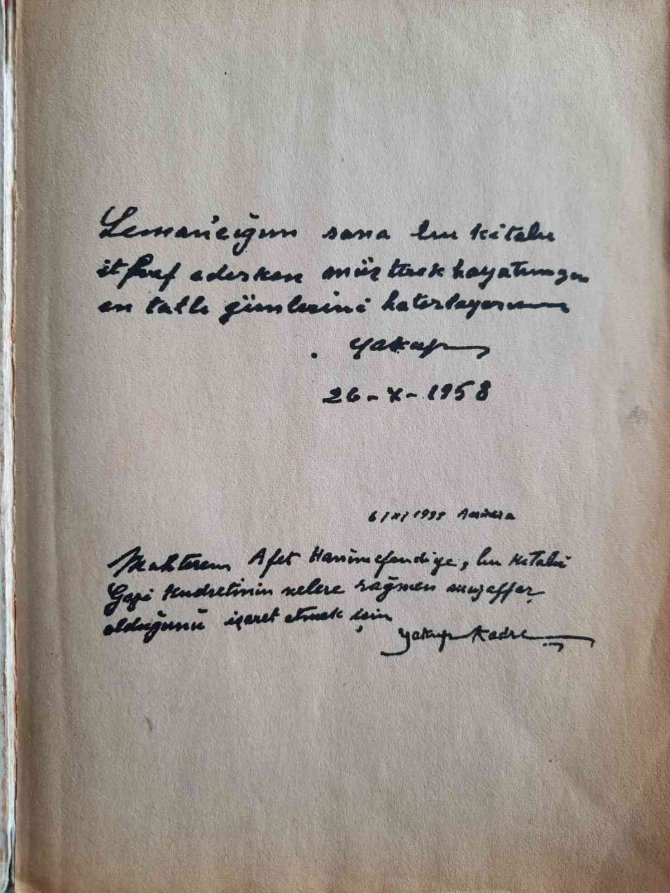 Leman'cığım sana bu kitabı
ithaf ederken müşterek hayatımızın
en tatlı günlerini hatırlayorum
Yakup
26-X-1958
6/XI/1933 Ankara
Muhterem Afet Hanımefendiye, bu kitabı
Gazi Kudretinin nelere rağmen muzaffer
olduğunu işaret etmek için
Yakup Kadri